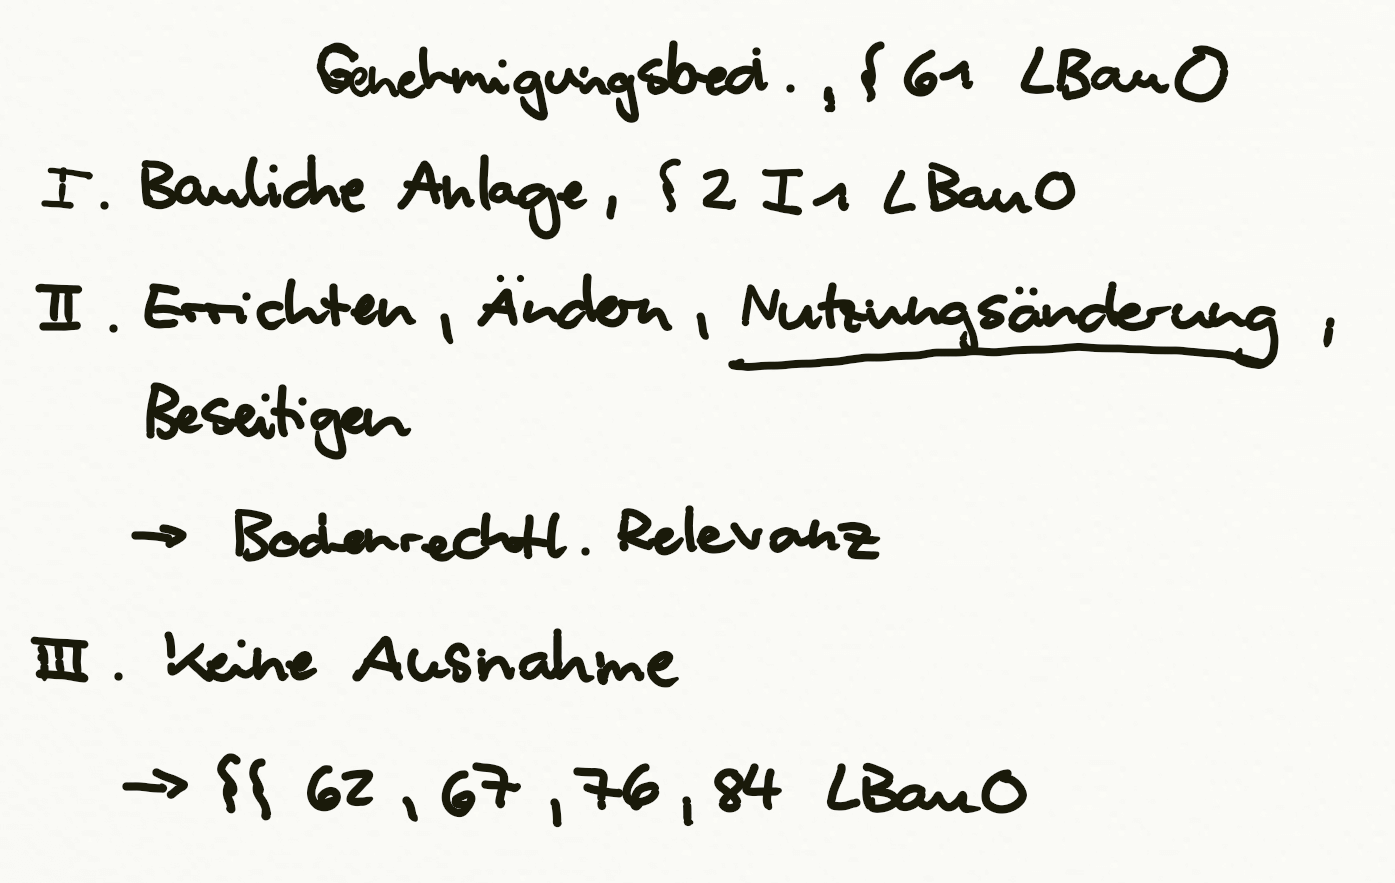 Genehmigungsbed. , § 61 LBauO
I. Bauliche Anlage, § 2 I 1 LBauO
II. Errichten, Ändern, Nutzungsänderung,
Beseitigen
→ Bodenrechtl. Relevanz
III. Keine Ausnahme
→ §§ 62, 67, 76, 84 LBauO